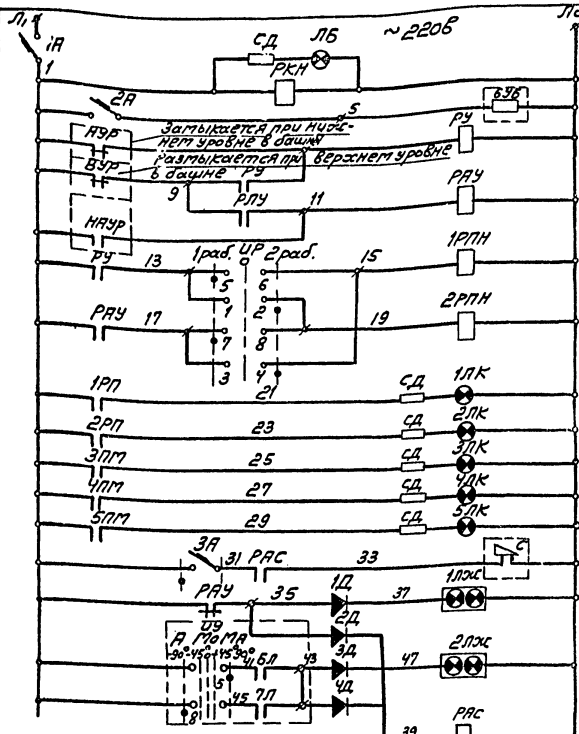 Л₁
1А
1
СД
ЛБ
~220в
РКН
2А
5
БУБ
АУР
Замыкается при ниж-
нем уровне в башне
РУ
ВУР
Размыкается при верхнем уровне
в башне
РУ
9
РПУ
11
РАУ
НАУР
РУ
13
1 раб.
ИР
О
2 раб.
15
1РПН
5
6
1
2
РАУ
17
7
8
19
2РПН
3
4
21
1РП
СД
1ЛК
2РП
23
СД
2ЛК
3ПМ
25
СД
3ЛК
4ПМ
27
СД
4ЛК
5ПМ
29
СД
5ЛК
3А
31
РАС
33
С
РАУ
35
1Д
37
1ЛЖ
2Д
А
МО
МА
-90°
-45°
0
+45°
90°
41
6Л
43
3Д
47
2ЛЖ
5
8
45
7Л
4Д
39
РАС